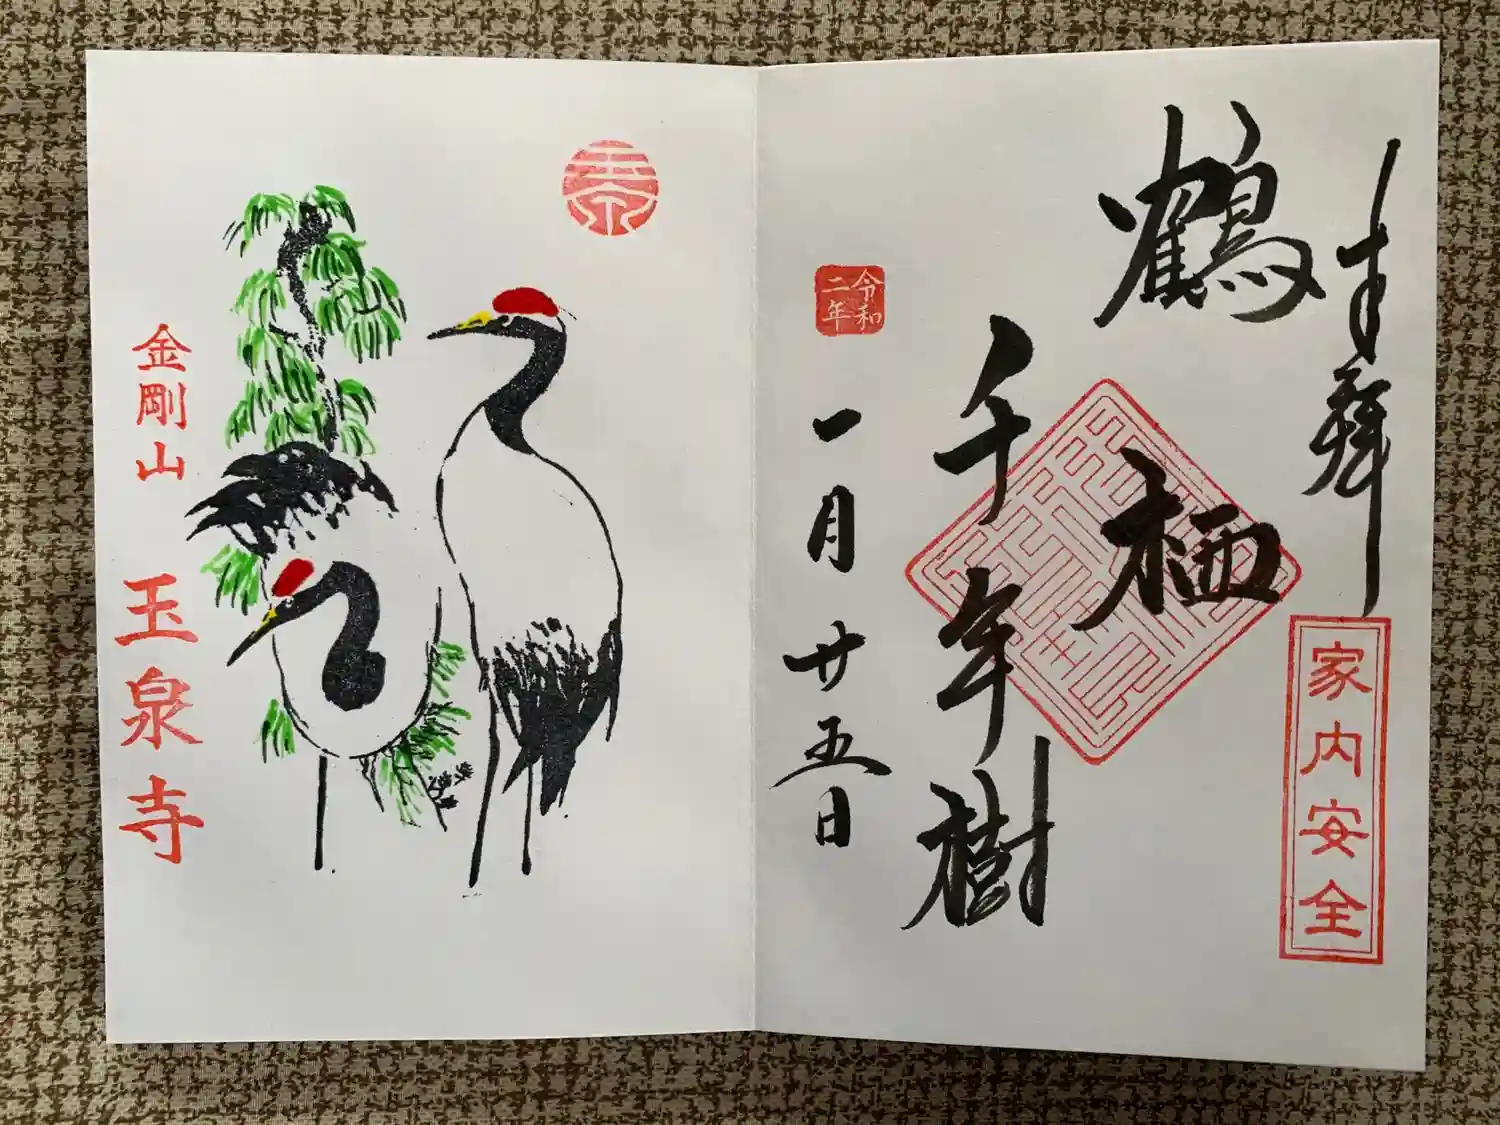 奉拝
家内安全
鶴栖
千年樹
令和
二年
一月廿五日
奉
金剛山
玉泉寺